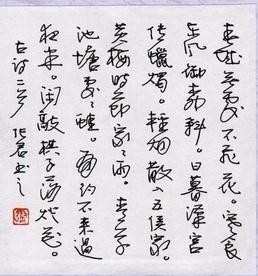 春城无处不飞花。寒食
东风御柳斜。日暮汉宫
传蜡烛。轻烟散入五侯家。
黄梅时节家々雨。青草
池塘处々蛙。有约不来过
夜半。闲敲棋子落灯花。
古诗二首 书之